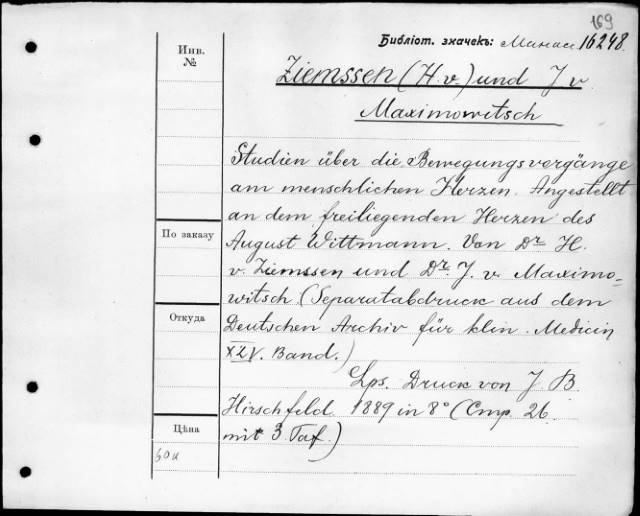 169
Библіот. значекъ: Манас 16248.
Инв. №
Ziemssen (H. v.) und J v
Maximowitsch
Studien über die Bewegungsvergänge
am menschlichen Herzen. Angestellt
an dem freiliegenden Herzen des
По заказу
August Wittmann. Von Dr. H.
v. Ziemssen und Dr. J. v. Maximo=
witsch (Separatabdruck aus dem
Откуда
Deutschen Archiv für klin. Medicin
XLV. Band.)
Lps. Druck von J B
Hirschfeld. 1889 in 8° (Стр. 26
Цѣна
mit 3. Taf.)
60к